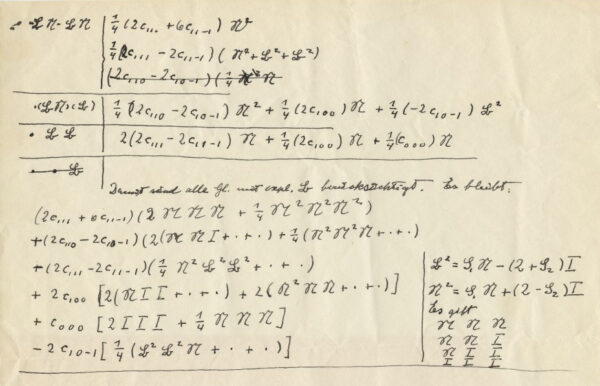 · 𝔏 𝔑 · 𝔏 𝔑 | 1/4 (2c₁₁₁ + 6c₁₁₋₁) 𝔑²
1/4 (2c₁₁₁ - 2c₁₁₋₁) (𝔑² + 𝔏² + 𝔏²)
(2c₁₁₀ - 2c₁₀₋₁) (1/4 𝔑² 𝔑
·(𝔏𝔑)·(𝔏) | 1/4 (2c₁₁₀ - 2c₁₀₋₁) 𝔑² + 1/4 (2c₁₀₀) 𝔑 + 1/4 (-2c₁₀₋₁) 𝔏²
· 𝔏 𝔏 | 2(2c₁₁₁ - 2c₁₁₋₁) 𝔑 + 1/4 (2c₁₀₀) 𝔑 + 1/4 (c₀₀₀) 𝔑
· · 𝔏
Damit sind alle Gl. mit expl. 𝔏 berücksichtigt. Es bleibt:
(2c₁₁₁ + 6c₁₁₋₁) (2 𝔑 𝔑 𝔑 + 1/4 𝔑² 𝔑² 𝔑²)
+ (2c₁₁₀ - 2c₁₀₋₁) (2(𝔑 𝔑 I + · + ·) + 1/4 (𝔑² 𝔑² 𝔑 + · + ·)
+ (2c₁₁₁ - 2c₁₁₋₁) (1/4 𝔑² 𝔏² 𝔏² + · + ·)
+ 2c₁₀₀ [2(𝔑 I I + · + ·) + 2(𝔑² 𝔑 𝔑 + · + ·)]
+ c₀₀₀ [2 I I I + 1/4 𝔑 𝔑 𝔑]
- 2c₁₀₋₁ [1/4 (𝔏² 𝔏² 𝔑 + · + ·)]
𝔏² = S₁ 𝔑 - (2 + S₂) I
𝔑² = S₁ 𝔑 + (2 - S₂) I
Es gibt
𝔑 𝔑 𝔑
𝔑 𝔑 I
𝔑 I I
I I I